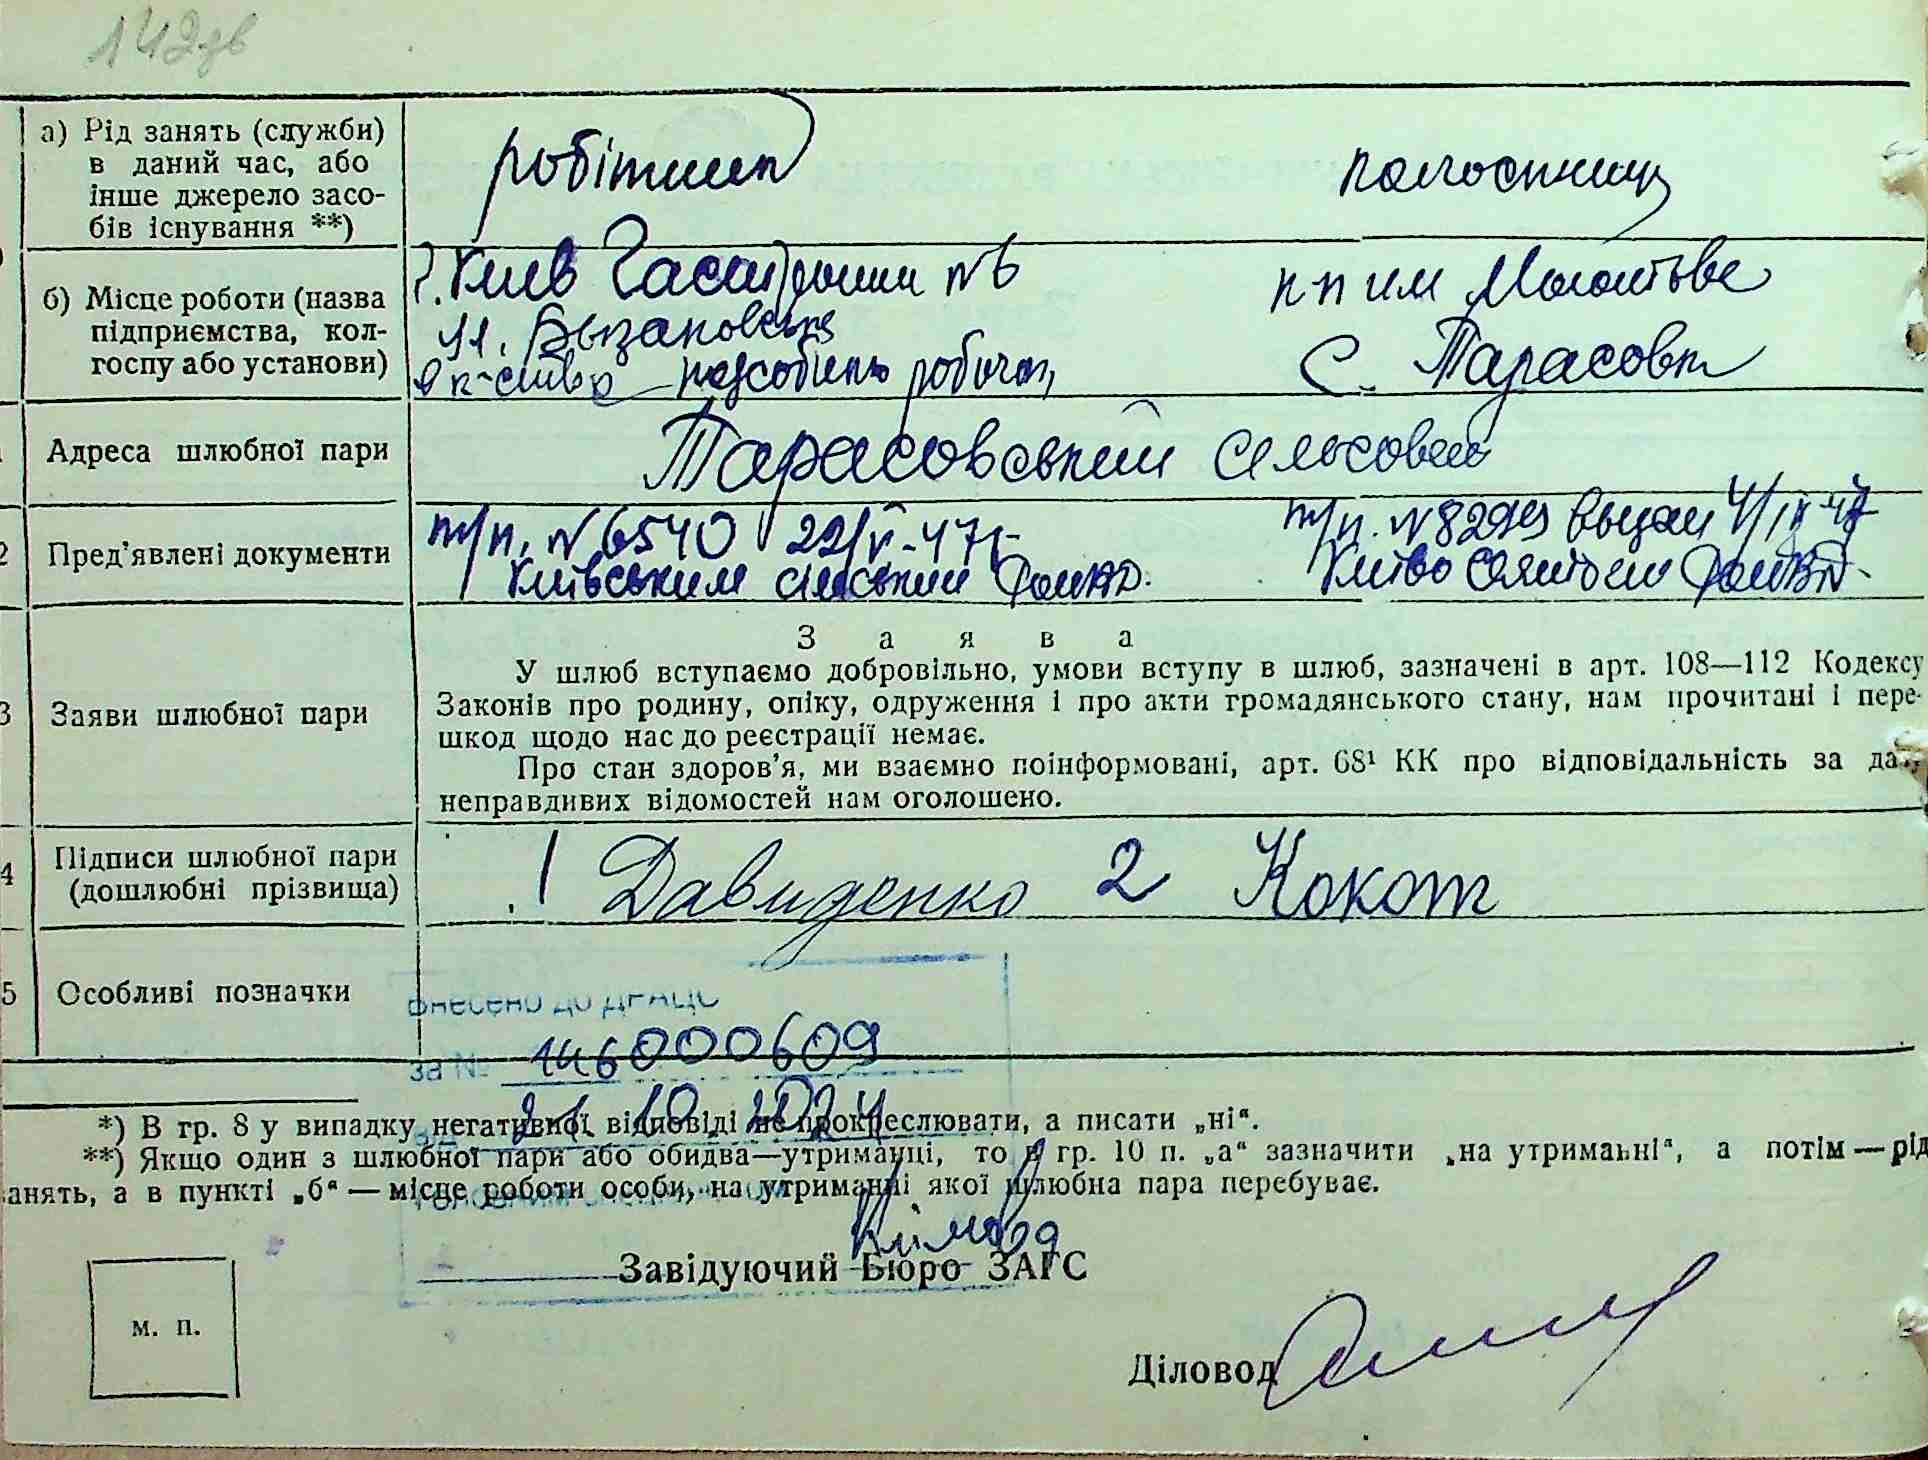 142зв
а) Рід занять (служби)
в даний час, або
інше джерело засо-
бів існування **)
робітник
колгоспниця
б) Місце роботи (назва
підприємства, кол-
госпу або установи)
г. Київ №6
ул.
як-ство підсобний робочий
к-п им Молотова
С. Тарасовка
Адреса шлюбної пари
Тарасовський сельсовет
2 Пред’явлені документи
т/п. № 6540 22/V-47г.
Київським сільським
т/п. № 8299 выдан 4/IX-47
3 Заяви шлюбної пари
Заява
У шлюб вступаємо добровільно, умови вступу в шлюб, зазначені в арт. 108—112 Кодексу
Законів про родину, опіку, одруження і про акти громадянського стану, нам прочитані і пере-
шкод щодо нас до реєстрації немає.
Про стан здоров’я, ми взаємно поінформовані, арт. 68¹ КК про відповідальність за дачу
неправдивих відомостей нам оголошено.
4 Підписи шлюбної пари
(дошлюбні прізвища)
1 Давиденко 2 Кокот
5 Особливі позначки
ВНЕСЕНО ДО ДРАЦС
за № 146000609
21.10.2024
*) В гр. 8 у випадку негативної відповіді не прокреслювати, а писати „ні“.
**) Якщо один з шлюбної пари або обидва—утриманці, то в гр. 10 п. „а“ зазначити „на утриманні“, а потім — рід
занять, а в пункті „б“ — місце роботи особи, на утриманні якої шлюбна пара перебуває.
Завідуючий Бюро ЗАГС
м. п.
Діловод